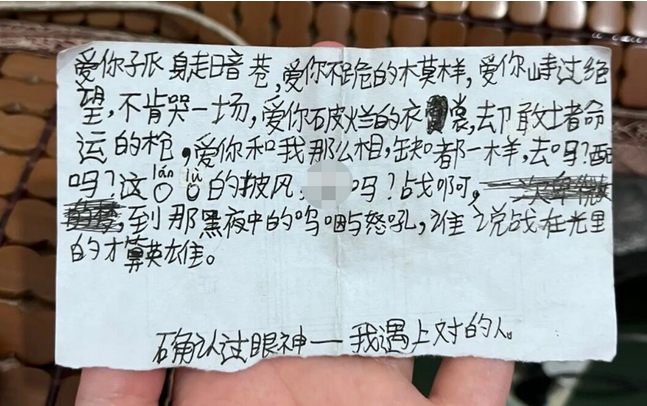 爱你孑派身走暗苍，爱你不跪的木莫样，爱你峙过绝
望，不肯哭一场，爱你破烂的衣裳，去卩敢土者命
运的枪，爱你和我那么相，缺都一样，去吗？配
吗？这lán lǚ的披风，吗？战啊，
到那黑夜中的呜咽与怒吼，谁说战在光里
的才算英雄。
确认过眼神——我遇上对的人。